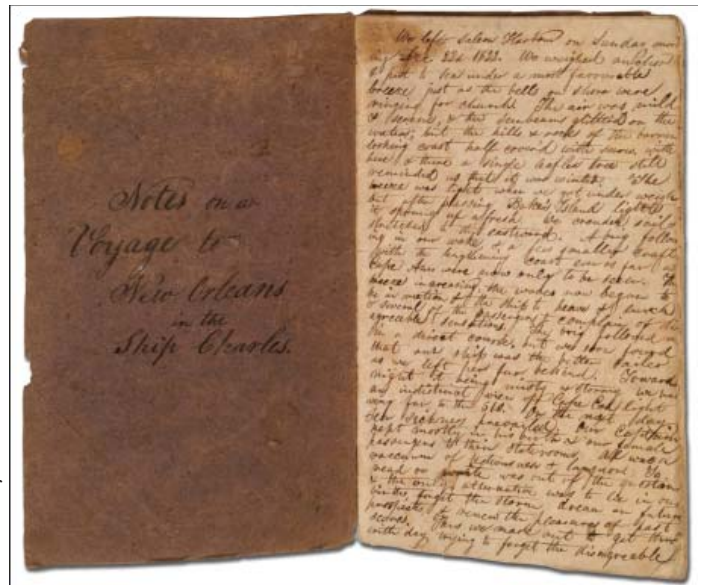 Notes on a
Voyage to
New Orleans
in the
Ship Charles.
We left Salem Harbour on Sunday morn
ing Dec 22d 1822. We weighed anchor
& put to sea under a most favourable
breeze just as the bells on shore were
ringing for church. The air was mild
& serene, & the sunbeams glittered on the
waters, but the hills & rocks of the barren
looking coast half coverid with snow, with
here & there a single leafless tree still
reminded us that it was winter. The
breeze was light when we got under weigh
but after passing Baker's Island light
it springs up afresh. We crowded sail
to the eastward. A brig follow
ing in our wake & a few smaller craft
with the lengthening coast even as far as
Cape Ann were now only to be seen. The
breeze increasing, the waves now began to
be in motion & the ship to heave &
& several of the passengers to complain of dis
agreeable sensations. The brig followed us
in a direct course, but we soon found
that our ship was the better sailer
as we left her far behind. Towards
night it being misty & stormy we had
an indistinct view off Cape Cod light
far to the SW. On the next day
sea sickness prevailed. Our Captain
kept mostly in his birth & our female
passengers to their staterooms. All was a
vaccuum of tediousness & langour. To
read or write was out of the question
& the only alternative was to lie in our
births, forget the storm, dream on future
prospects, & renew the pleasures of past
scenes. Thus we made out to get thro
with day, trying to forget the disagreeable